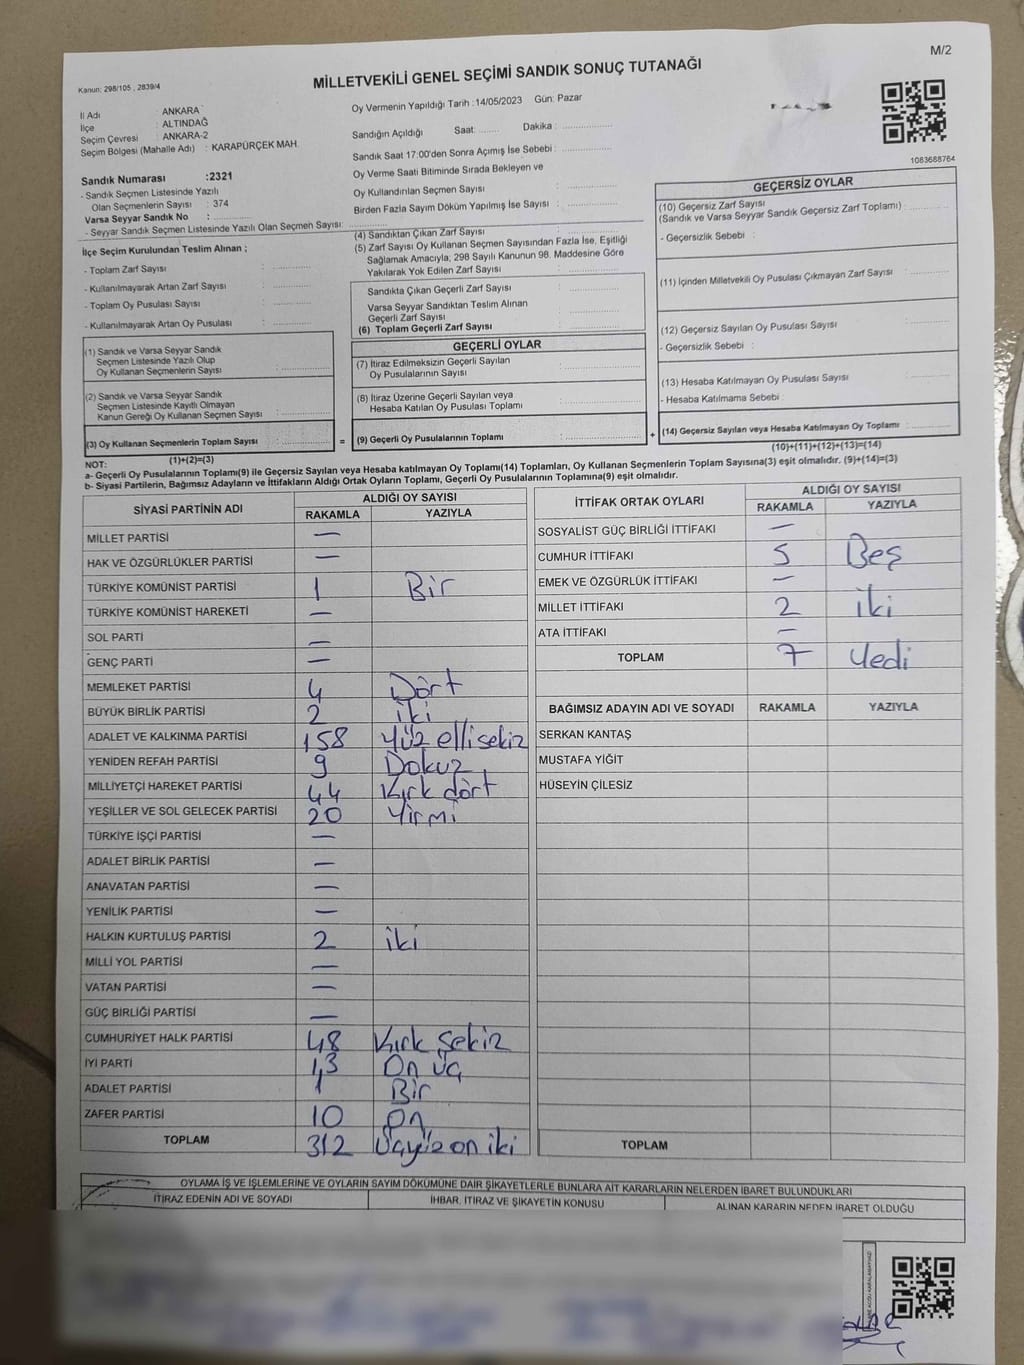 M/2
Kanun: 298/105, 2839/4
MİLLETVEKİLİ GENEL SEÇİMİ SANDIK SONUÇ TUTANAĞI
İl Adı : ANKARA
İlçe : ALTINDAĞ
Seçim Çevresi : ANKARA-2
Seçim Bölgesi (Mahalle Adı) : KARAPÜRÇEK MAH.
Oy Vermenin Yapıldığı Tarih :14/05/2023 Gün: Pazar
Sandığın Açıldığı Saat: ........ Dakika : ................
Sandık Saat 17:00'den Sonra Açımış İse Sebebi : ................
Oy Verme Saati Bitiminde Sırada Bekleyen ve
Oy Kullandırılan Seçmen Sayısı : ................
Birden Fazla Sayım Döküm Yapılmış İse Sayısı : ................
1083688764
Sandık Numarası :2321
- Sandık Seçmen Listesinde Yazılı
Olan Seçmenlerin Sayısı : 374
Varsa Seyyar Sandık No : ................
- Seyyar Sandık Seçmen Listesinde Yazılı Olan Seçmen Sayısı: ................
İlçe Seçim Kurulundan Teslim Alınan ;
- Toplam Zarf Sayısı : ................
- Kullanılmayarak Artan Zarf Sayısı : ................
- Toplam Oy Pusulası Sayısı : ................
- Kullanılmayarak Artan Oy Pusulası : ................
(1) Sandık ve Varsa Seyyar Sandık
Seçmen Listesinde Yazılı Olup
Oy Kullanan Seçmenlerin Sayısı : ................
(2) Sandık ve Varsa Seyyar Sandık
Seçmen Listesinde Kayıtlı Olmayan
Kanun Gereği Oy Kullanan Seçmen Sayısı : ................
(3) Oy Kullanan Seçmenlerin Toplam Sayısı : ................
(1)+(2)=(3)
(4) Sandıktan Çıkan Zarf Sayısı : ................
(5) Zarf Sayısı Oy Kullanan Seçmen Sayısından Fazla İse, Eşitliği
Sağlamak Amacıyla; 298 Sayılı Kanunun 98. Maddesine Göre
Yakılarak Yok Edilen Zarf Sayısı : ................
Sandıkta Çıkan Geçerli Zarf Sayısı : ................
Varsa Seyyar Sandıktan Teslim Alınan
Geçerli Zarf Sayısı : ................
(6) Toplam Geçerli Zarf Sayısı : ................
GEÇERLİ OYLAR
(7) İtiraz Edilmeksizin Geçerli Sayılan
Oy Pusulalarının Sayısı : ................
(8) İtiraz Üzerine Geçerli Sayılan veya
Hesaba Katılan Oy Pusulası Toplamı : ................
= (9) Geçerli Oy Pusulalarının Toplamı : ................ +
GEÇERSİZ OYLAR
(10) Geçersiz Zarf Sayısı
(Sandık ve Varsa Seyyar Sandık Geçersiz Zarf Toplamı) : ................
- Geçersizlik Sebebi :
(11) İçinden Milletvekili Oy Pusulası Çıkmayan Zarf Sayısı : ................
(12) Geçersiz Sayılan Oy Pusulası Sayısı : ................
- Geçersizlik Sebebi :
(13) Hesaba Katılmayan Oy Pusulası Sayısı : ................
- Hesaba Katılmama Sebebi :
(14) Geçersiz Sayılan veya Hesaba Katılmayan Oy Toplamı : ................
(10)+(11)+(12)+(13)=(14)
NOT:
a- Geçerli Oy Pusulalarının Toplamı(9) ile Geçersiz Sayılan veya Hesaba katılmayan Oy Toplamı(14) Toplamları, Oy Kullanan Seçmenlerin Toplam Sayısına(3) eşit olmalıdır. (9)+(14)=(3)
b- Siyasi Partilerin, Bağımsız Adayların ve İttifakların Aldığı Ortak Oyların Toplamı, Geçerli Oy Pusulalarının Toplamına(9) eşit olmalıdır.
SİYASİ PARTİNİN ADI ALDIĞI OY SAYISI
RAKAMLA YAZIYLA
MİLLET PARTİSİ —
HAK VE ÖZGÜRLÜKLER PARTİSİ —
TÜRKİYE KOMÜNİST PARTİSİ 1 Bir
TÜRKİYE KOMÜNİST HAREKETİ —
SOL PARTİ —
GENÇ PARTİ —
MEMLEKET PARTİSİ 4 Dört
BÜYÜK BİRLİK PARTİSİ 2 iki
ADALET VE KALKINMA PARTİSİ 158 Yüz ellisekiz
YENİDEN REFAH PARTİSİ 9 Dokuz
MİLLİYETÇİ HAREKET PARTİSİ 44 Kırk dört
YEŞİLLER VE SOL GELECEK PARTİSİ 20 Yirmi
TÜRKİYE İŞÇİ PARTİSİ —
ADALET BİRLİK PARTİSİ —
ANAVATAN PARTİSİ —
YENİLİK PARTİSİ —
HALKIN KURTULUŞ PARTİSİ 2 iki
MİLLİ YOL PARTİSİ —
VATAN PARTİSİ —
GÜÇ BİRLİĞİ PARTİSİ —
CUMHURİYET HALK PARTİSİ 48 Kırk Sekiz
İYİ PARTİ 13 On üç
ADALET PARTİSİ 1 Bir
ZAFER PARTİSİ 10 On
TOPLAM 312 Üçyüz on iki
İTTİFAK ORTAK OYLARI ALDIĞI OY SAYISI
RAKAMLA YAZIYLA
SOSYALİST GÜÇ BİRLİĞİ İTTİFAKI —
CUMHUR İTTİFAKI 5 Beş
EMEK VE ÖZGÜRLÜK İTTİFAKI —
MİLLET İTTİFAKI 2 iki
ATA İTTİFAKI —
TOPLAM 7 Yedi
BAĞIMSIZ ADAYIN ADI VE SOYADI RAKAMLA YAZIYLA
SERKAN KANTAŞ
MUSTAFA YİĞİT
HÜSEYİN ÇİLESİZ
TOPLAM
OYLAMA İŞ VE İŞLEMLERİNE VE OYLARIN SAYIM DÖKÜMÜNE DAİR ŞİKAYETLERLE BUNLARA AİT KARARLARIN NELERDEN İBARET BULUNDUKLARI
İTİRAZ EDENİN ADI VE SOYADI İHBAR, İTİRAZ VE ŞİKAYETİN KONUSU ALINAN KARARIN NEDEN İBARET OLDUĞU